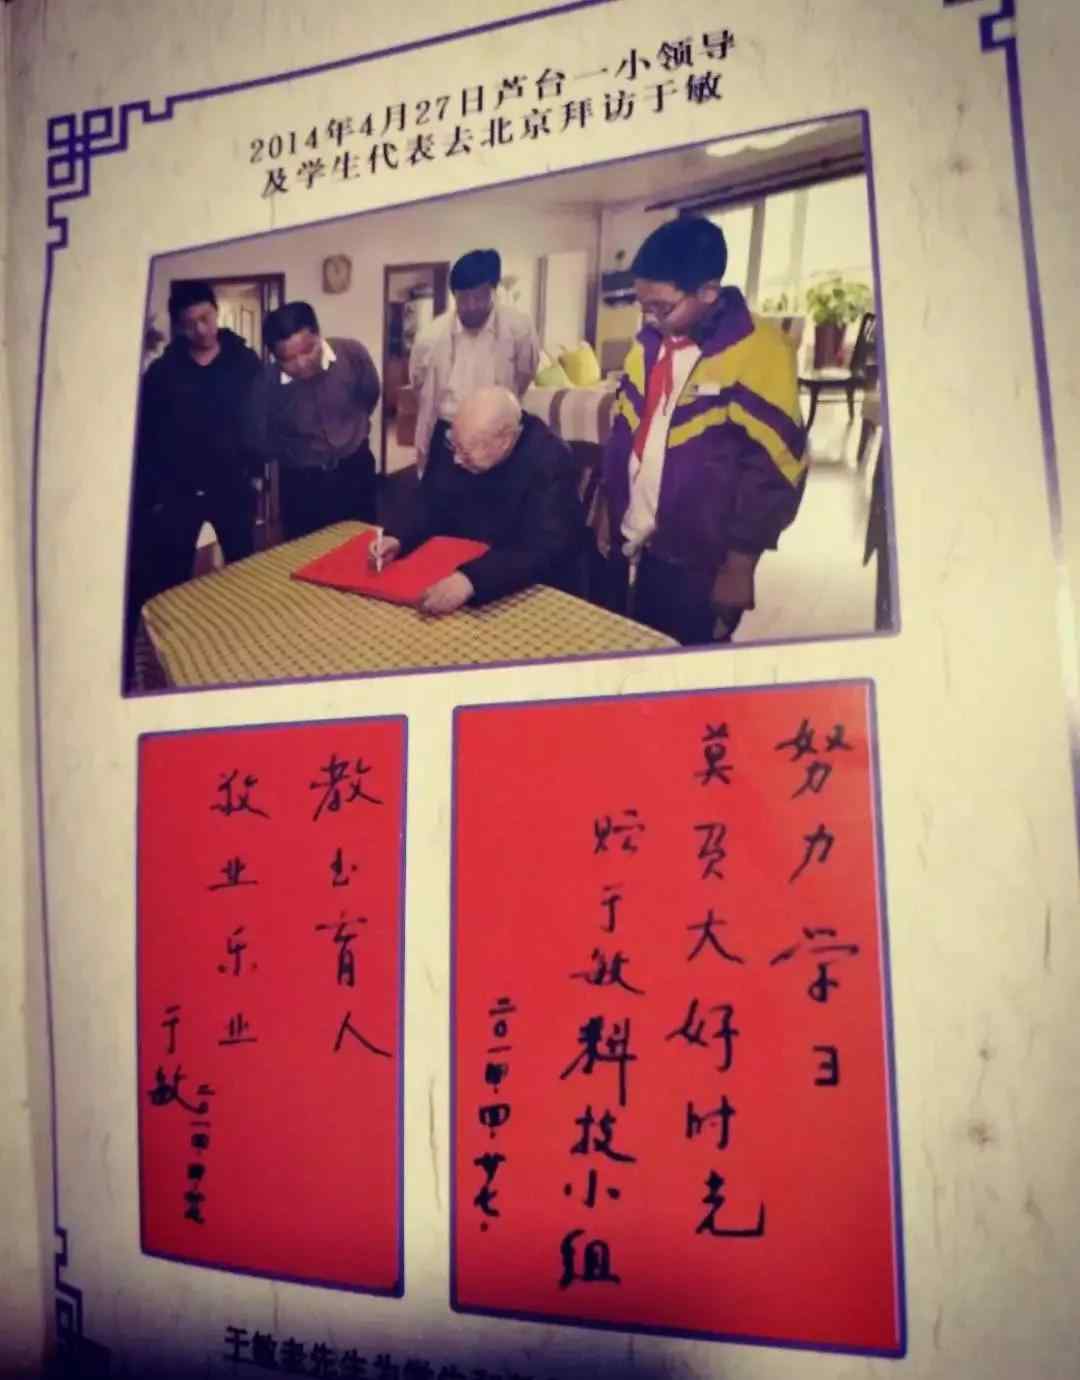 2014年4月27日芦台一小领导
及学生代表去北京拜访于敏
教书育人
敬业乐业
于敏
二〇一四.四.廿七
努力学习
莫负大好时光
于敏科技小组
二〇一四.四.廿七.
于敏老先生为学生